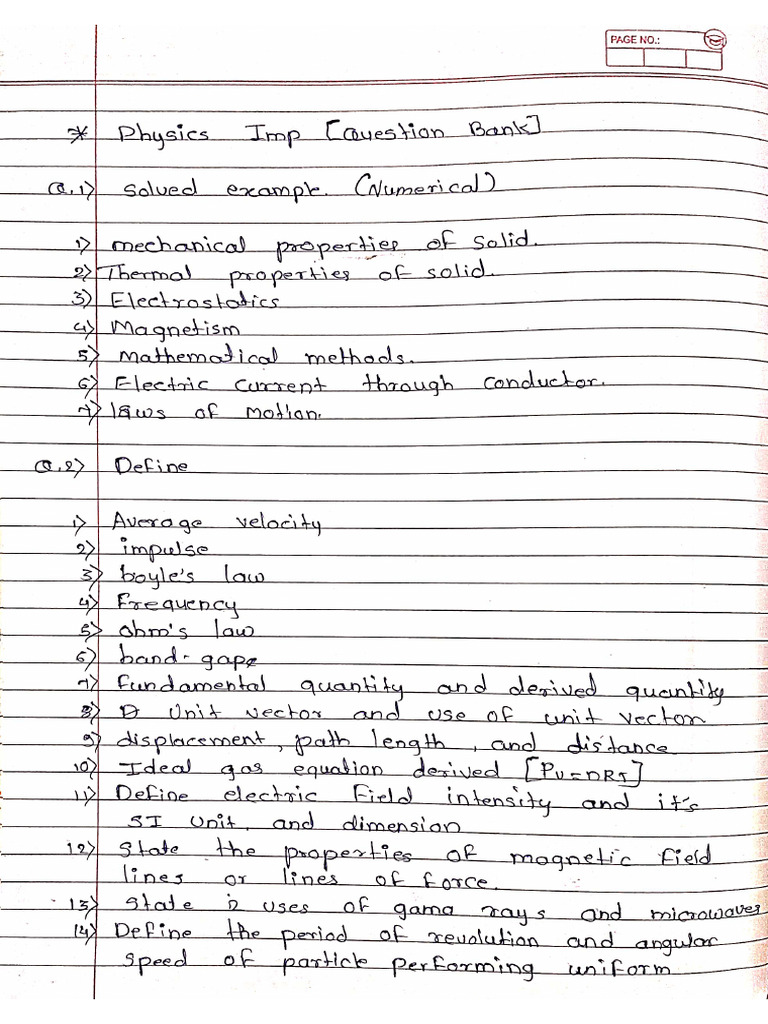 PAGE NO.:
* Physics Imp [Question Bank]
Q.1) Solved example. (Numerical)
1) mechanical properties of solid.
2) Thermal properties of solid.
3) Electrostatics
4) Magnetism
5) Mathematical methods.
6) Electric current through conductor.
7) laws of motion.
Q.2) Define
1) Average velocity
2) impulse
3) boyle's law
4) Frequency
5) ohm's law
6) band-gap
7) fundamental quantity and derived quantity
8) Unit vector and use of unit vector
9) displacement, path length, and distance
10) Ideal gas equation derived [PV=nRT]
11) Define electric field intensity and it's
SI Unit. and dimension
12) State the properties of magnetic field
lines or lines of force.
13) State 2 uses of gama rays and microwaves
14) Define the period of revolution and angular
speed of particle performing uniform